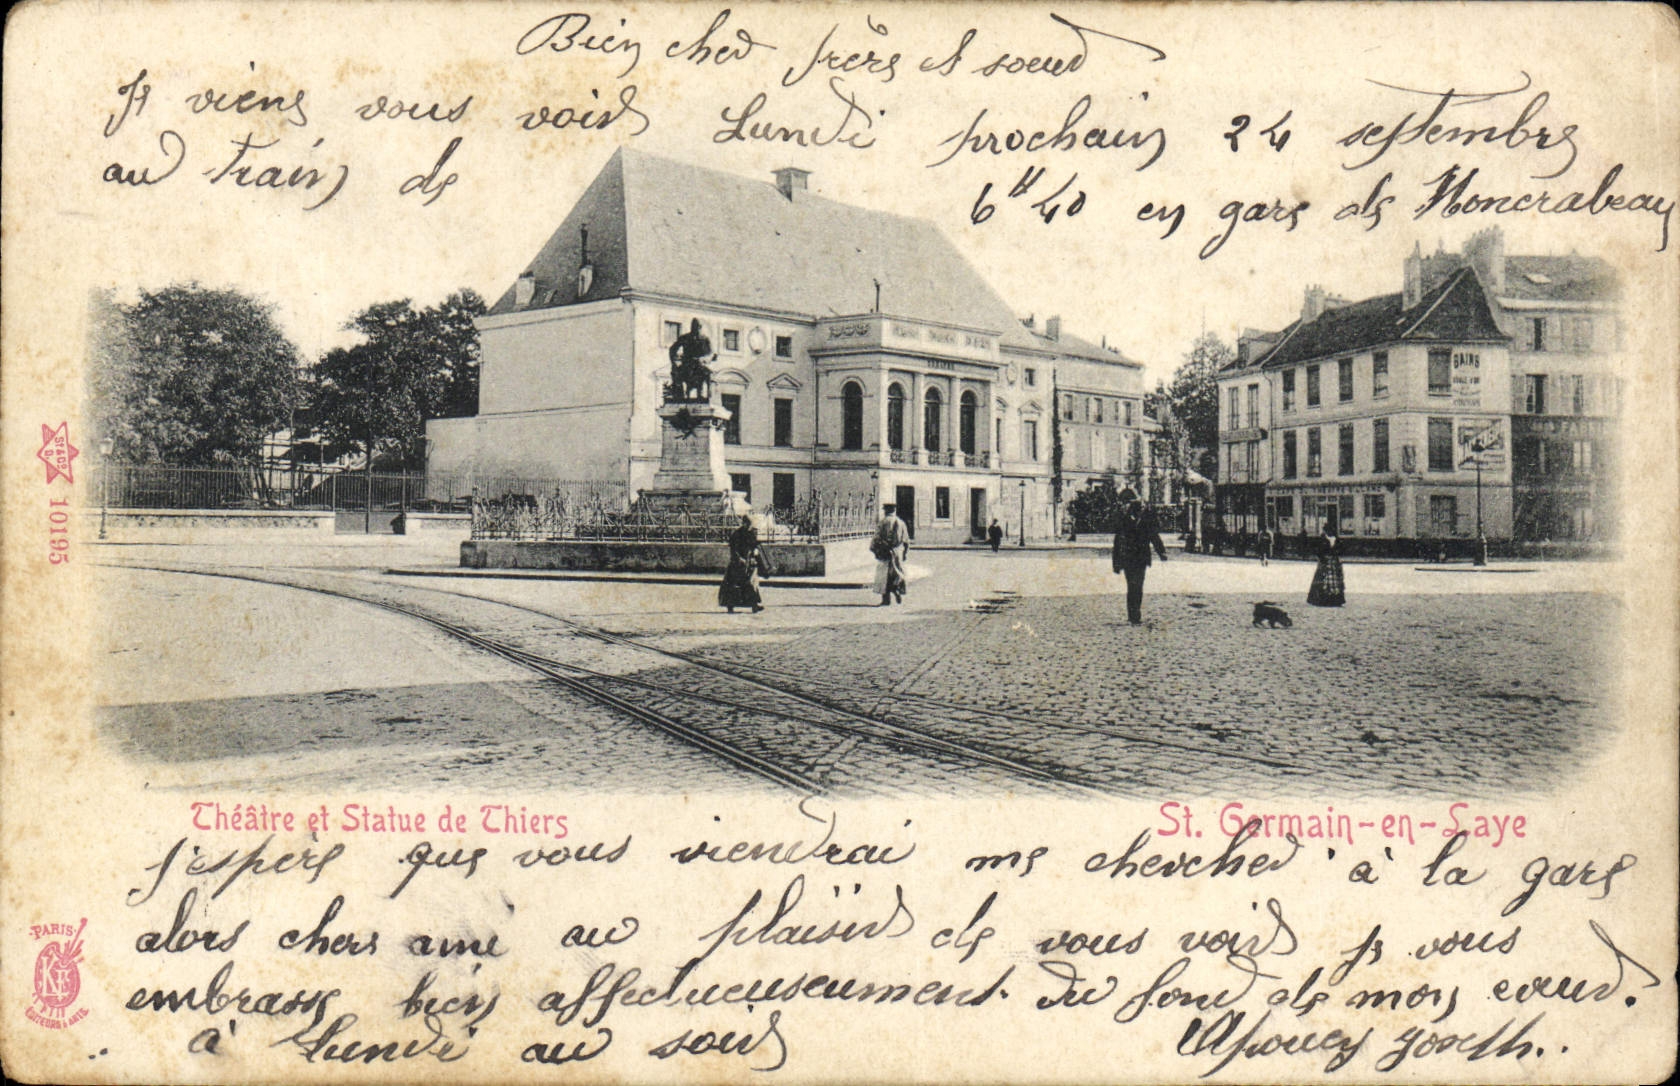 Bien cher frère et soeur
Je viens vous voir Lundi prochain 24 septembre
au train de 6H40 en gare de Moncrabeau
BAINS
THÉATRE
St & Co D.
10195
Théâtre et Statue de Thiers
St. Germain-en-Laye
J'espère que vous viendrai me chercher à la gare
alors chers ami au plaisir de vous voir je vous
embrasse bien affectueuseument. du fond de mon coeur.
à Lundi au soir
Joseth..
PARIS
KF
EDITEURS D'ARTS